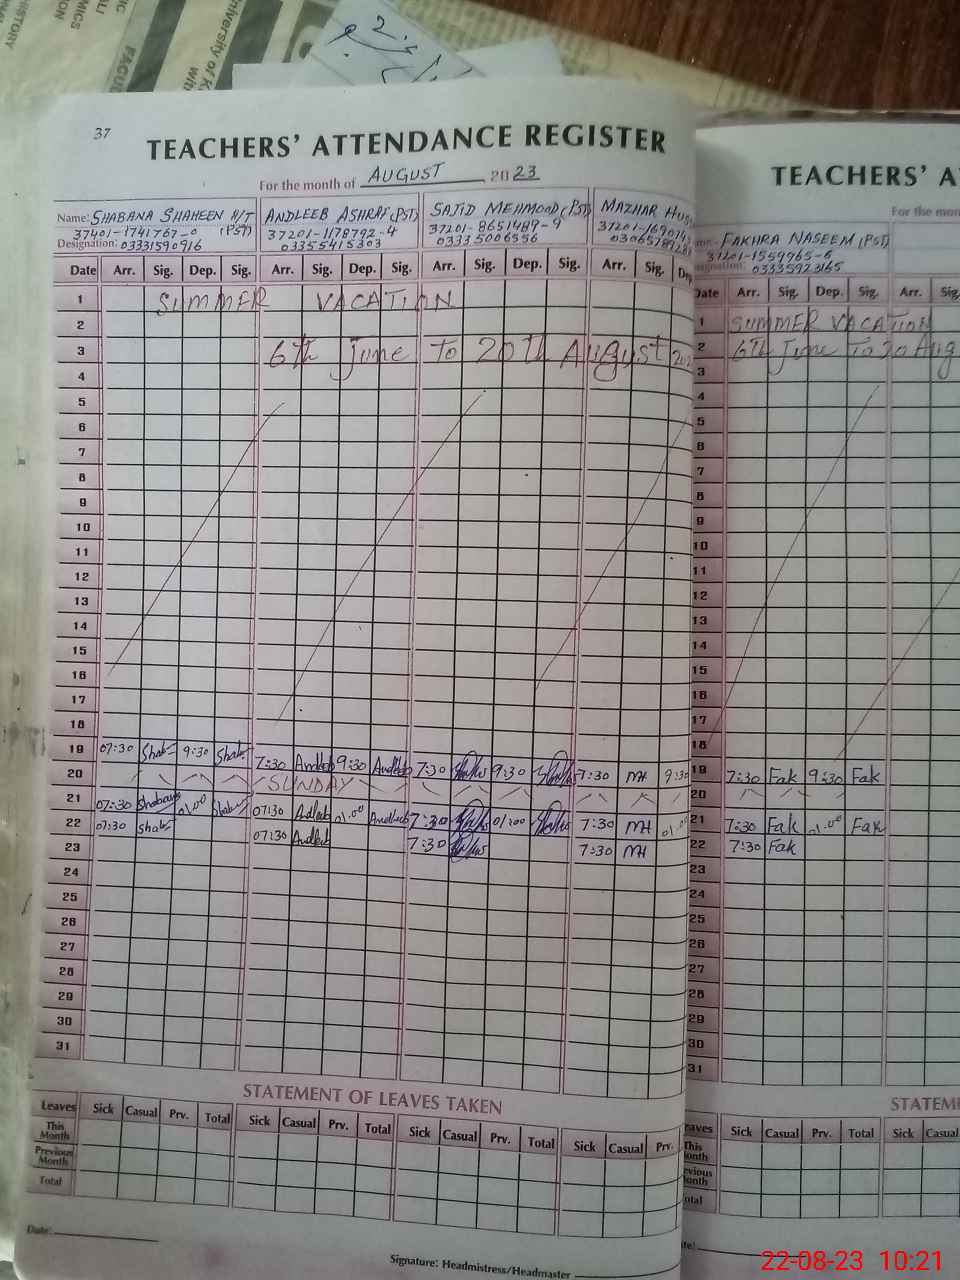 37
TEACHERS' ATTENDANCE REGISTER
For the month of AUGUST 2023
Name: SHABANA SHAHEEN H/T (PST) ANDLEEB ASHRAF (PST) SAJID MEHMOOD (PST) MAZHAR
37401-1741767-0 37201-1178792-4 37201-8651489-9
Designation: 03331590916 03355415303 03335006556
Date Arr. Sig. Dep. Sig. Arr. Sig. Dep. Sig. Arr. Sig. Dep. Sig. Arr. Sig. Dep
1 SUMMER VACATION
2
3 6th june To 20Th August
4
5
6
7
8
9
10
11
12
13
14
15
16
17
18
19 07:30 Shab 9:30 Shab 7:30 Andleeb 9:30 Andleeb 7:30 9:30 7:30 MH 9:30
20 SUNDAY
21 07:30 Shabana 01.00 Shab 07:30 Andleeb 01.00 Andleeb 7:30 01:00 7:30 MH 01.00
22 07:30 Shab 07:30 Andleeb 7:30 7:30 MH
23
24
25
26
27
28
29
30
31
STATEMENT OF LEAVES TAKEN
Leaves Sick Casual Prv. Total Sick Casual Prv. Total Sick Casual Prv. Total Sick Casual Prv.
This Month
Previous Month
Total
Date:
Signature: Headmistress/Headmaster
TEACHERS' A
For the mon
FAKHRA NASEEM (PST)
37201-1559965-6
signation: 03335923165
Date Arr. Sig. Dep. Sig. Arr. Sig
1 SUMMER VACATION
2 6Th June To 20 Aug
3
4
5
6
7
8
9
10
11
12
13
14
15
16
17
18
19 7:30 Fak 9:30 Fak
20
21 7:30 Fak 01.00 Fak
22 7:30 Fak
23
24
25
26
27
28
29
30
31
STATEM
eaves Sick Casual Prv. Total Sick Casual
This onth
evious onth
otal
22-08-23 10:21